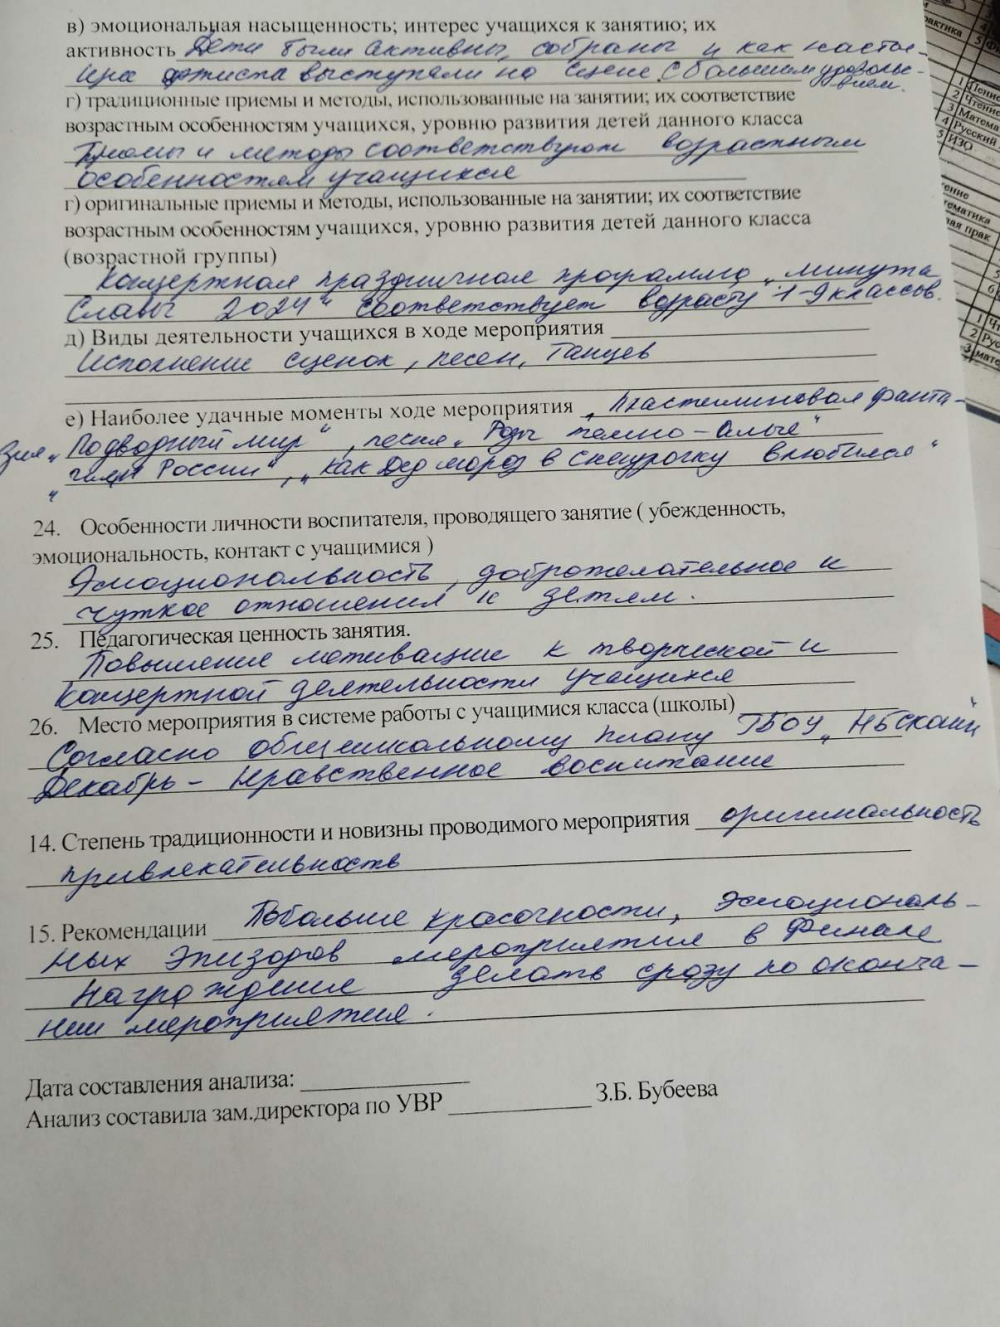 в) эмоциональная насыщенность; интерес учащихся к занятию; их
активность Дети были активны, собраны и как настоя-
щие артисты выступали на сцене с большим удовольс-
твием.
г) традиционные приемы и методы, использованные на занятии; их соответствие
возрастным особенностям учащихся, уровню развития детей данного класса
Приемы и методы соответствуют возрастным
особенностям учащихся
г) оригинальные приемы и методы, использованные на занятии; их соответствие
возрастным особенностям учащихся, уровню развития детей данного класса
(возрастной группы)
Концертная праздничная программа „Минута
Славы 2024" соответствует возрасту 1-9 классов.
д) Виды деятельности учащихся в ходе мероприятия
Исполнение сценок, песен, танцев
е) Наиболее удачные моменты ходе мероприятия „Пластилиновая фанта-
зия „Подводный мир", песня „Розы темно-алые"
„ России", „Как Дед мороз в Снегурочку влюбился"
24. Особенности личности воспитателя, проводящего занятие ( убежденность,
эмоциональность, контакт с учащимися )
Эмоциональность, доброжелательное и
чуткое отношения к детям.
25. Педагогическая ценность занятия.
Повышение мотивации к творческой и
концертной деятельности учащихся
26. Место мероприятия в системе работы с учащимися класса (школы)
Согласно общешкольному плану ГБОУ „НБСКОШИ"
Декабрь – Нравственное воспитание
14. Степень традиционности и новизны проводимого мероприятия оригинальность
привлекательность
15. Рекомендации Побольше красочности, эмоциональ-
ных эпизодов мероприятия в финале
Награждение делать сразу по оконча-
нии мероприятия.
Дата составления анализа:
Анализ составила зам.директора по УВР З.Б. Бубеева
1 Чтение
3 Матема
4 Русский
5 ИЗО